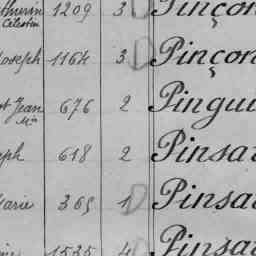 1209 3 Pinçon
Célestin
Joseph 1164 3 Pinçon
Jean 676 2 Pingui
Mie
618 2 Pinsa
Marie 365 1 Pinsa
1535 4 Pinsa